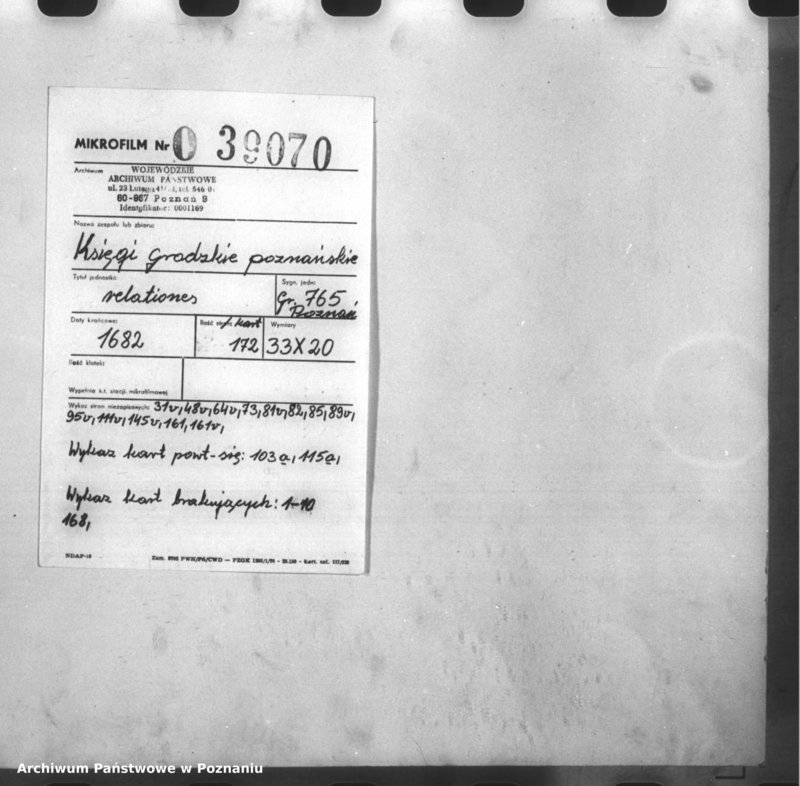 MIKROFILM Nr 0 39070
Archiwum
WOJEWÓDZKIE
ARCHIWUM PAŃSTWOWE
ul. 23 Lutego 41/43, tel. 546 0
60-967 Poznań 9
Identyfikator: 0001169
Nazwa zespołu lub zbioru:
Księgi grodzkie poznańskie
Tytuł jednostki:
relationes
Sygn. jedn:
Gr. 765
Poznań
Daty krańcowe:
1682
Ilość stron/kart
172
Wymiary
33X20
Ilość klatek:
Wypełnia k.t. stacji mikrofilmowej
Wykaz stron niezapisanych: 31v, 48v, 64v, 73, 81v, 82, 85, 89v,
95v, 111v, 145v, 161, 161v,
Wykaz kart powt-się: 103a, 115a,
Wykaz kart brakujących: 1-10
168,
NDAP-16
Archiwum Państwowe w Poznaniu